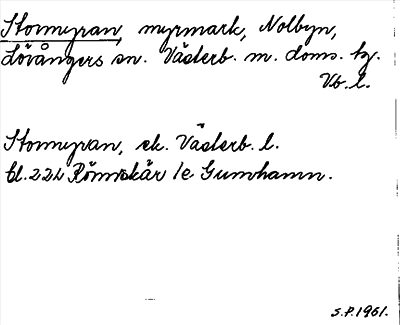 Stormyran, myrmark, Nolbyn,
Lövångers sn. Västerb. m. doms. tg.
Vb. l.
Stormyran, ek. Västerb. l.
bl. 22L Römskär /e Gumhamn.
S.P. 1961.